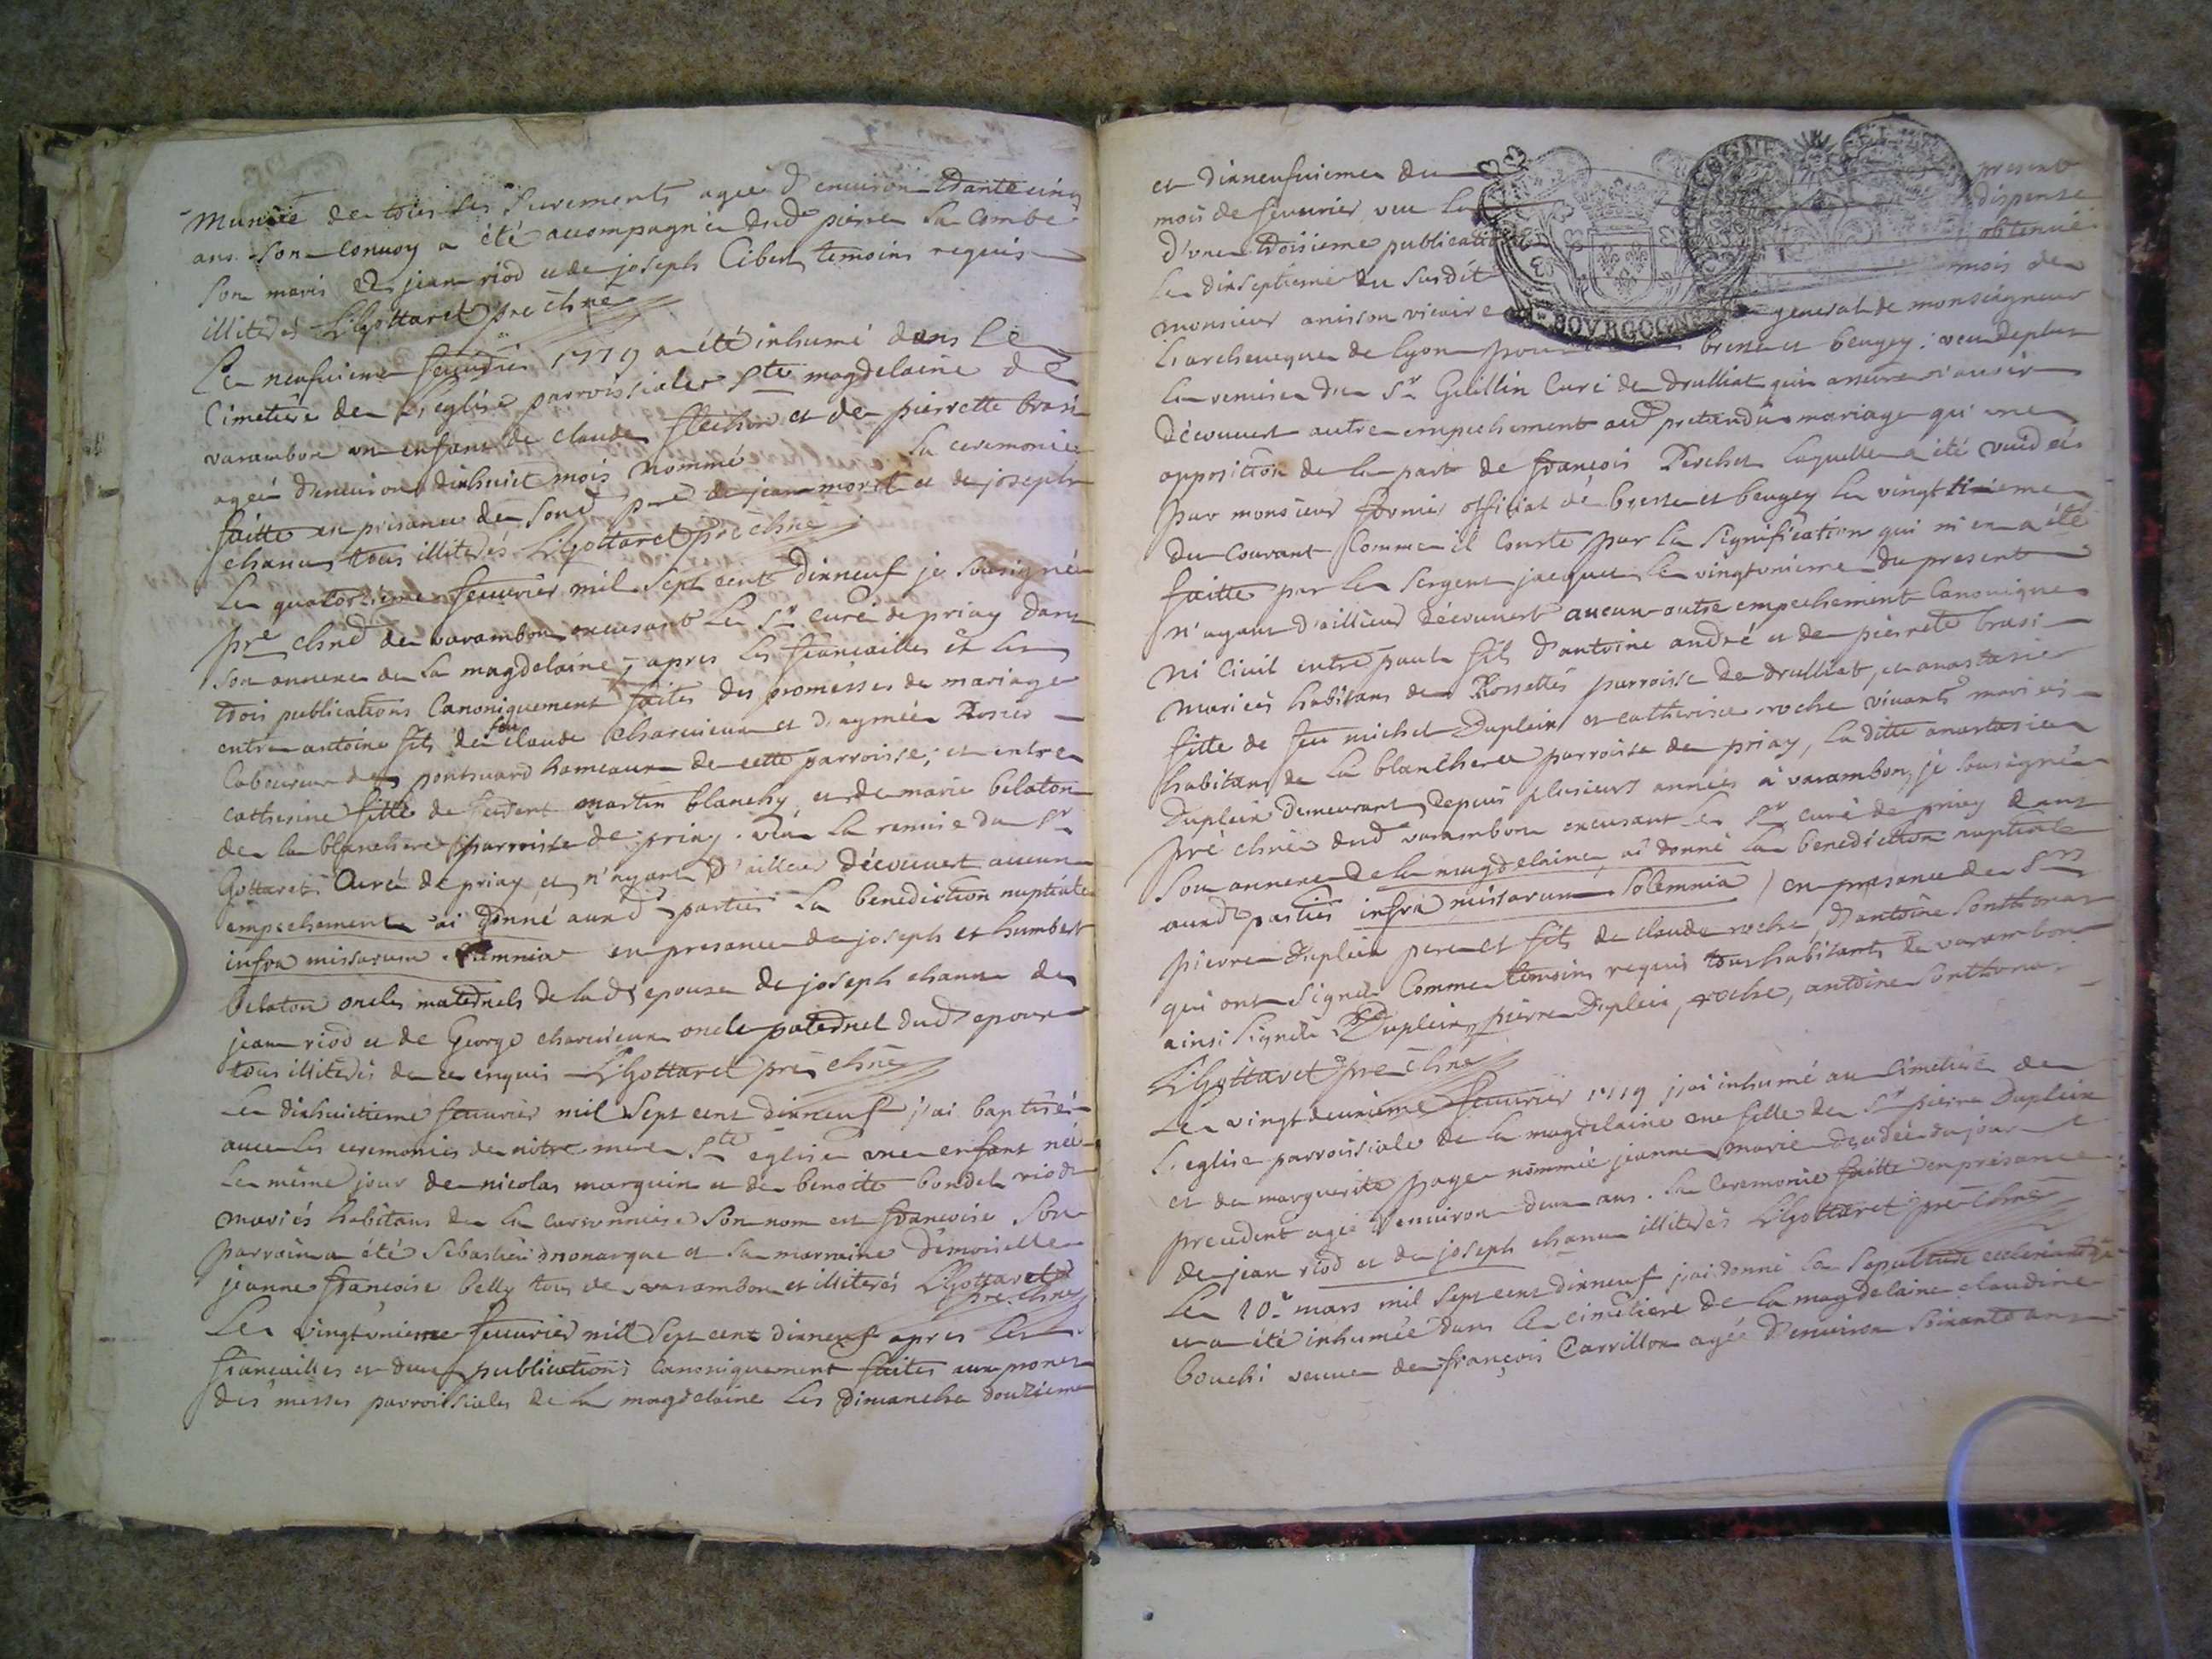 munie de tous les Sacrements agée d'environ trante cinq
ans. Son convoy a été accompagné dud pierre La Combe
Son maris et jean riod et de joseph Cibert temoins requis
illiterés LGottaret pre chne
Le neufvieme fevrier 1719 a été inhumé dans le
Cimetière de l'eglise parroissiale Ste magdelaine de
varambon un enfant de claude et de pierrette
ageé d'environ dixhuict mois nommé La ceremonie
faitte en presance de Sond pre de jean moret et de joseph
chanu tous illiterés LGottaret pre chne
Le quatorzieme fevrier mil sept cent dixneuf je sousigné
pre chne de varambon excusant le Sr curé de priay dans
Son annexe de la magdelaine, apres les fiançailles et les
trois publications Canoniquement faites des promesses de mariage
entre antoine fils de feu claude Charvieux et d'aymée Rosier
laboureur de pontsuard hameaux de cette parroisse; et entre
catherine fille de martin blanchy et de marie belaton
de la blanchere parroisse de priay. veu la remise du Sr
Gottaret Curé de priay et n'ayant d'ailleur décowert aucun
empechement ai donné auxd parties la benediction nuptiale
infra missarum Solemnia en presance de joseph et humbert
belaton oncles maternels de lad epouse de joseph chanu de
jean riod et de George charvieux oncle paternel dud epoux
tous illiterés de ce enquis LGottaret pre chne
Le dixhuictieme fevrier mil Sept cent dixneuf j'ai baptisé
avec les ceremonies de nôtre mere Ste eglise une enfant née
le même jour de nicolas marguin et de benoite bondet riod
mariés habitans de la Son nom est françoise Son
parrain a été Sebastien monarque et sa marraine Demoiselle
jeanne françoise belly tous de varambon et illiterés LGottaret
pre chne
Le vingtunieme fevrier mil Sept cent dixneuf apres les
fiancailles et deux publications canoniquement faites aux prones
des messes parroissiales de la magdelaine les dimanche douzieme
et dixneufvieme du present
mois de fevrier, veu la dispense
d'une troisieme publication obtenuë
Le dixseptieme du Susdit mois de
monsieur anisson vicaire general de monseigneur
L'archeveque de lyon pour bresse et beugey; veu deplus
la remise du Sr Guillin Curé de druillat qui assure n'avoir
décowert autre empechement aud pretandu mariage qu'une
opposition de la part de françois Perchet laquelle a été vuidée
par monsieur fornier official de bresse et beugey le vingttieme
du Courant Comme il Conste par la Signification qui m'en a été
faitte par le Sergent jacquet le vingtunieme du present
n'ayant d'ailleur décowert aucun autre empechement Canonique
ni Civil entre paul fils d'antoine andré et de pierrete
mariés habitans de Rossettes parroisse de druillat, et anastasie
fille de feu michel Duplein et catherine roche vivants mariés
habitans de la blanchere parroisse de priay, la ditte anastasie
Duplein demeurant depuis plusieurs années à varambon, je sousigné
pre chne dud varambon excusant le Sr curé de priay dans
Son annexe de la magdelaine, ai donné la benediction nuptiale
auxd parties infra missarum Solemnia) en presance de Srs
pierre Duplein pere et fils de claude roche, d'antoine Sonthonax
qui ont signés Comme temoins requis tous habitants de varambon
ainsi Signés Duplein, pierre Duplein, roche, antoine Sonthonax
LGottaret pre chne
Le vingtdeuxieme fevrier 1719 j'ai inhumé au Cimetière de
l'eglise parroissiale de la magdelaine une fille de Sr pierre Duplein
et de marguerite page nommée jeanne marie decedée du jour
precedent agée d'environ deux ans. La Ceremonie faitte en présance
de jean riod et de joseph chanu illiterés LGottaret pre chne
Le 10e mars mil sept cent dixneuf j'ai donné la Sepulture ecclesiastique
et a été inhumée dans le cimetiere de la magdelaine claudine
bouchi veuve de françois Carrillon agée d'environ Soixante ans
BOVRGOGNE